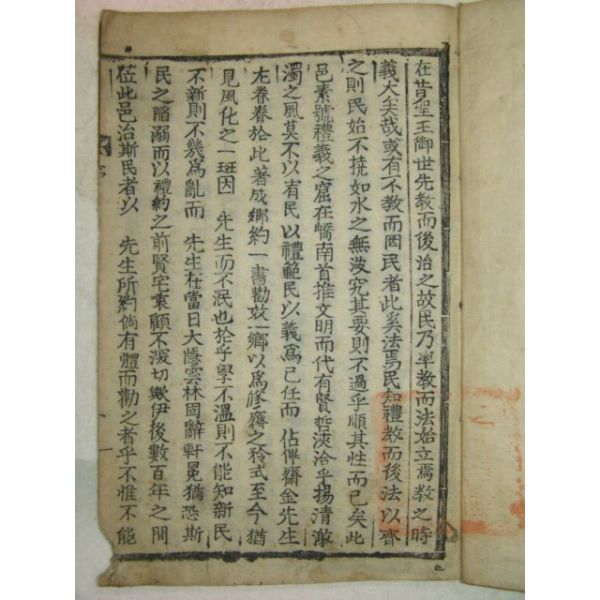 在昔聖王御世先教而後治之故民乃率教而法始立焉教之時
義大矣哉或有不教而罔民者此奚法焉民知禮教而後法以齊
之則民始不撓如水之無波究其要則不過乎順其性而已矣此
邑素號禮義之窟在嶠南首推文明而代有賢哲浹洽乎揚清激
濁之風莫不以有民以禮範民以義爲己任而 佔俾齋金先生
尤眷眷於此著成鄉約一書勸妓一鄉以爲修齊之柃式至今猶
見風化之一斑因 先生而不泯也於乎學不溫則不能知新民
不新則不幾爲亂而 先生在當日大隱雲林固辭軒冕猶恐斯
民之陷溺而以禮約之前賢宅衷顧不深切歟伊後數百年之間
莅此邑治斯民者以 先生所約倘有體而勸之者乎不惟不能